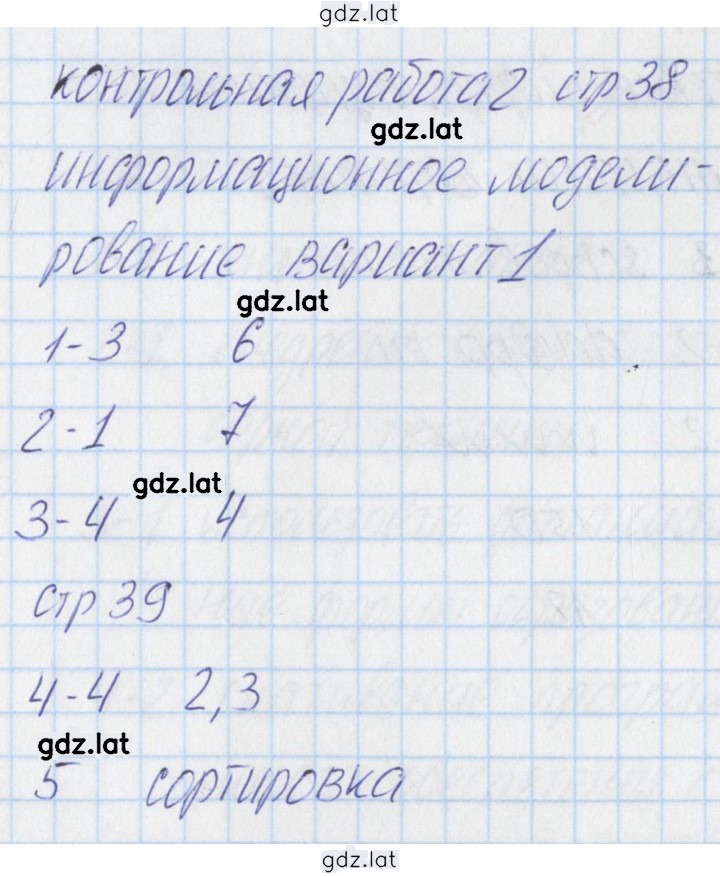 gdz.lat
контрольная работа 2 стр 38
gdz.lat
информационное модели-
рование вариант 1
gdz.lat
1-3 6
2-1 7
gdz.lat
3-4 4
стр 39
4-4 2,3
gdz.lat
5 сортировка
gdz.lat